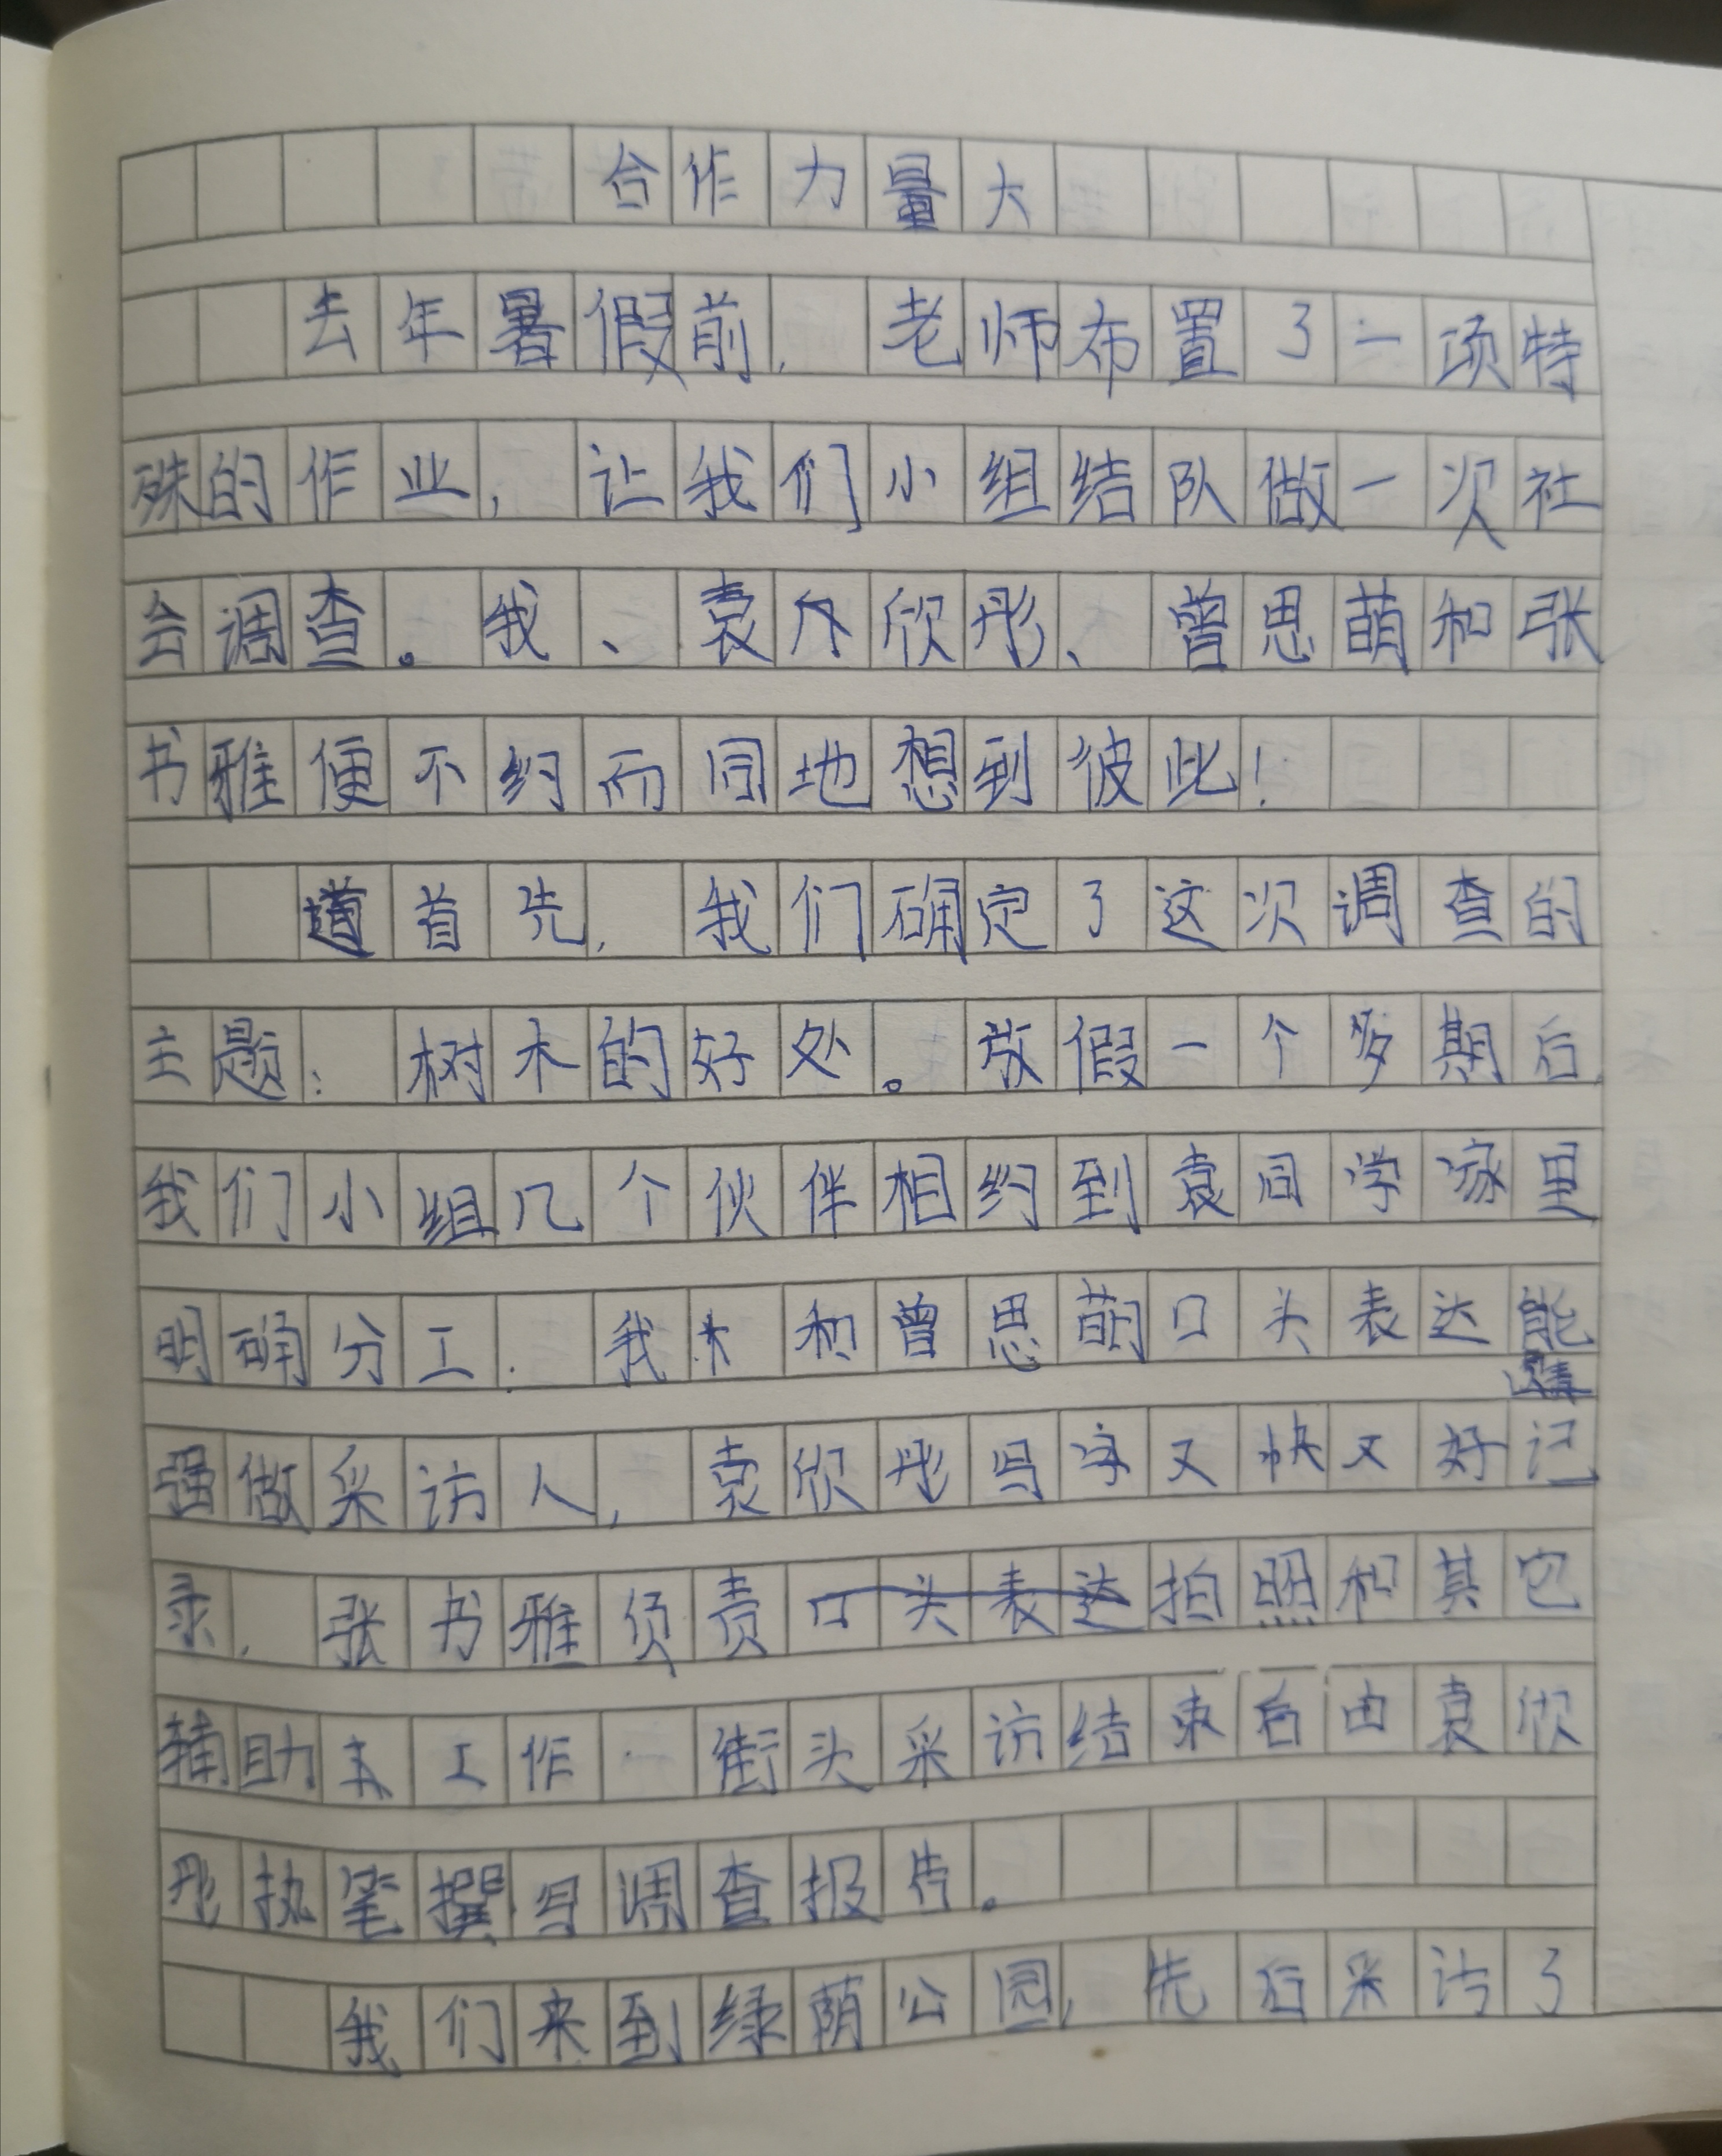 合作力量大
去年暑假前，老师布置了一项特
殊的作业，让我们小组结队做一次社
会调查。我、袁欣彤、曾思萌和张
书雅便不约而同地想到彼此！
首先，我们确定了这次调查的
主题：树木的好处。放假一个多期后，
我们小组几个伙伴相约到袁同学家里
明确分工．我和曾思萌口头表达能
强做采访人，袁欣彤写字又快又好记
录，张书雅负责拍照和其它
辅助工作 街头采访结束后由袁欣
彤执笔撰写调查报告。
我们来到绿荫公园，先后采访了